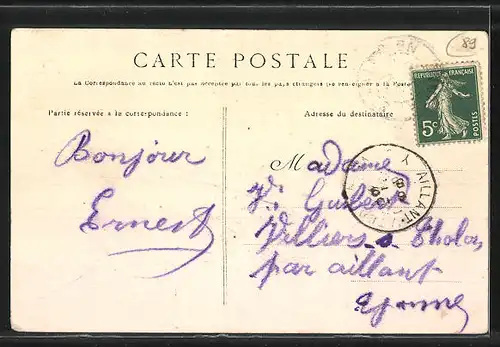 89
CARTE POSTALE
La Correspondance au recto n'est pas acceptée par tous les pays étrangers (se renseigner à la Poste
Partie réservée a la correspondance :
Adresse du destinataire
REPUBLIQUE FRANÇAISE
5c
POSTES
AILLANT
Bonjour
Ernest
Madame
Villiers s Tholon
par aillant
Yonne